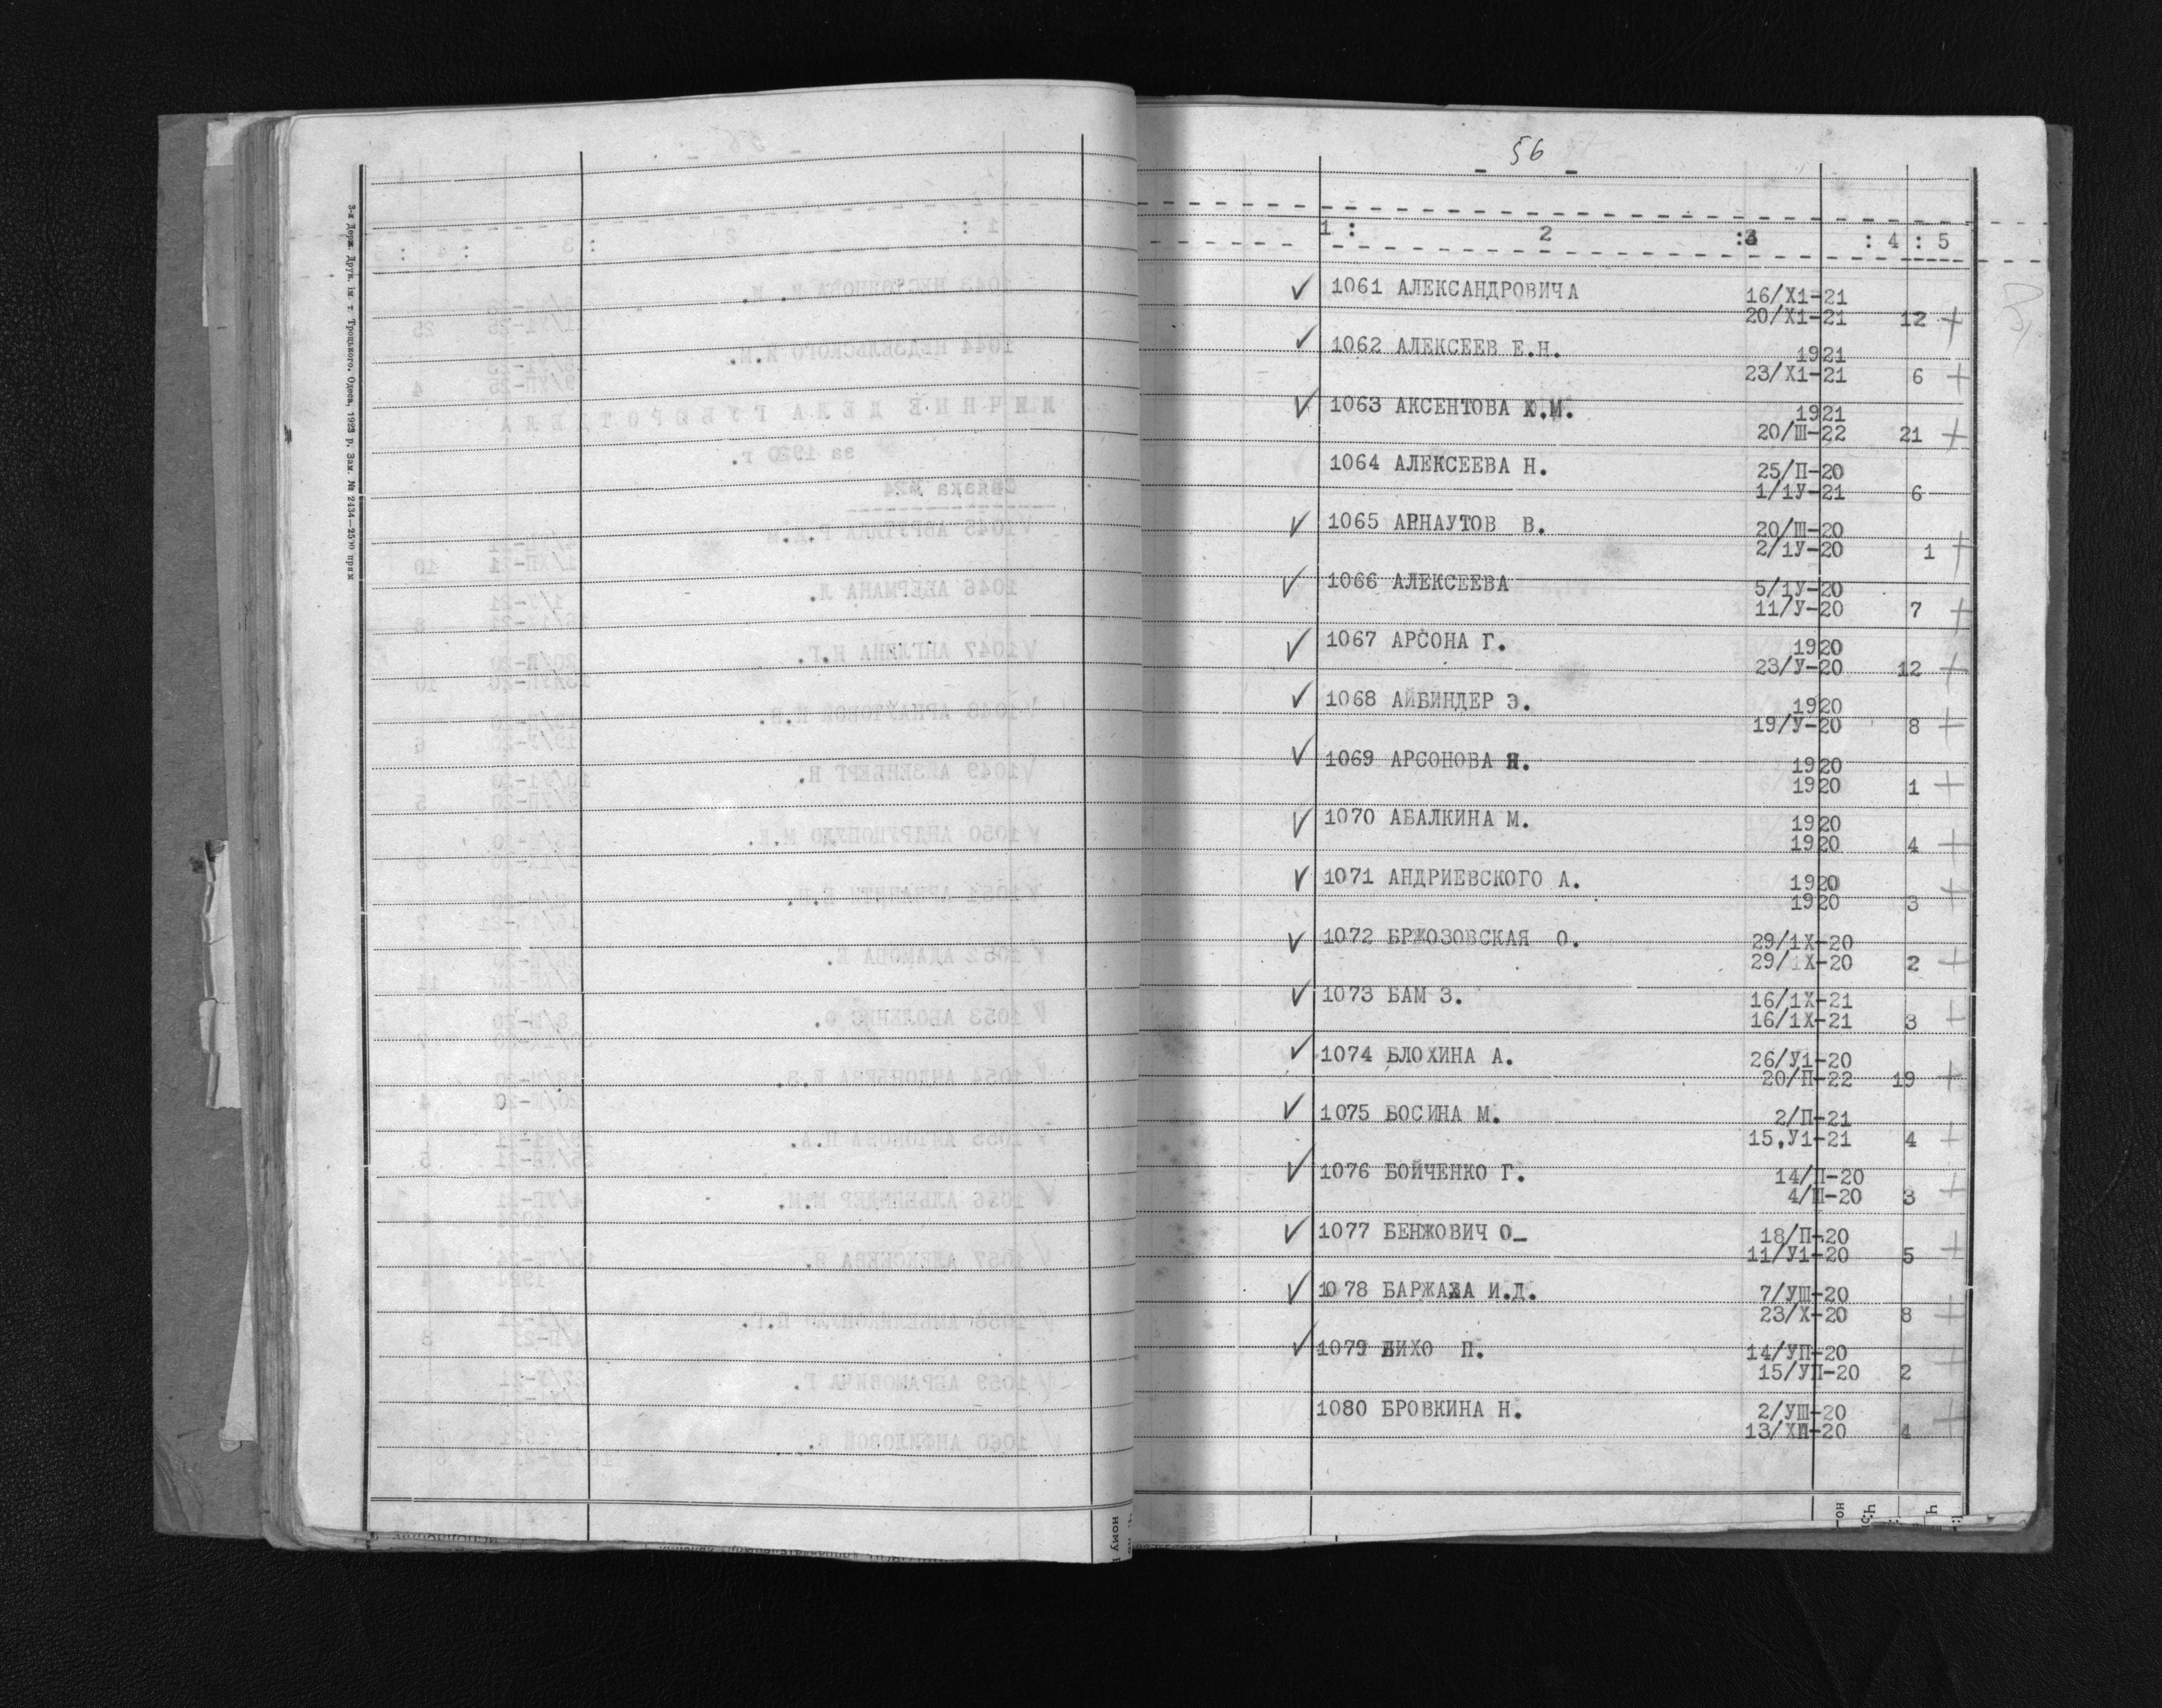 3-я Держ. Друк. ім. т. Троцького. Одеса, 1923 р. Зам. № 2434—2500 прим
56
1 : 2 :3 : 4 : 5
✓ 1061 АЛЕКСАНДРОВИЧА 16/Х1-21
20/Х1-21 12 +
✓ 1062 АЛЕКСЕЕВ Е.Н. 1921
23/Х1-21 6 +
✓ 1063 АКСЕНТОВА Ю.М. 1921
20/Ш-22 21 +
1064 АЛЕКСЕЕВА Н. 25/П-20
1/1У-21 6
✓ 1065 АРНАУТОВ В. 20/Ш-20
2/1У-20 1 +
✓ 1066 АЛЕКСЕЕВА 5/1У-20
11/У-20 7 +
✓ 1067 АРСОНА Г. 1920
23/У-20 12 +
✓ 1068 АЙБИНДЕР Э. 1920
19/У-20 8 +
✓ 1069 АРСОНОВА Я. 1920
1920 1 +
✓ 1070 АБАЛКИНА М. 1920
1920 4 +
✓ 1071 АНДРИЕВСКОГО А. 1920
1920 3 +
✓ 1072 БРЖОЗОВСКАЯ О. 29/1Х-20
29/1Х-20 2 +
✓ 1073 БАМ З. 16/1Х-21
16/1Х-21 3 +
✓ 1074 БЛОХИНА А. 26/У1-20
20/П-22 19 +
✓ 1075 БОСИНА М. 2/П-21
15,У1-21 4 +
✓ 1076 БОЙЧЕНКО Г. 14/П-20
4/Ш-20 3 +
✓ 1077 БЕНЖОВИЧ О_ 18/П-20
11/У1-20 5 +
✓ 1078 БАРЖАХА И.Д. 7/УШ-20
23/Х-20 8 +
✓ 1079 БИХО П. 14/УП-20
15/УП-20 2 +
1080 БРОВКИНА Н. 2/УШ-20
13/ХП-20 4 +